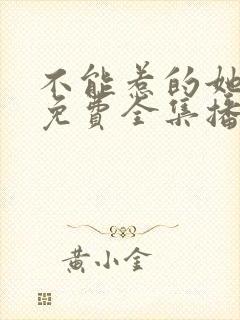 不能惹的她
免费全集播
黄小金